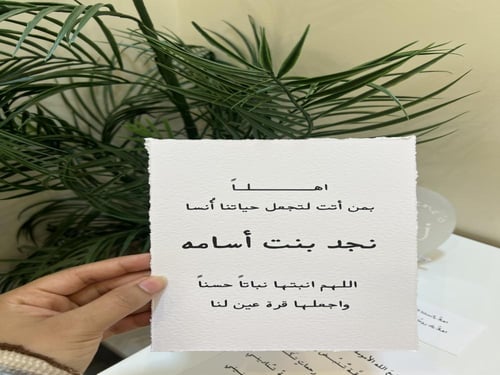 اهـــــــلاً
بمن أتت لتجعل حياتنا أُنسا
نجد بنت أسامه
اللهم انبتها نباتاً حسناً
واجعلها قرة عين لنا